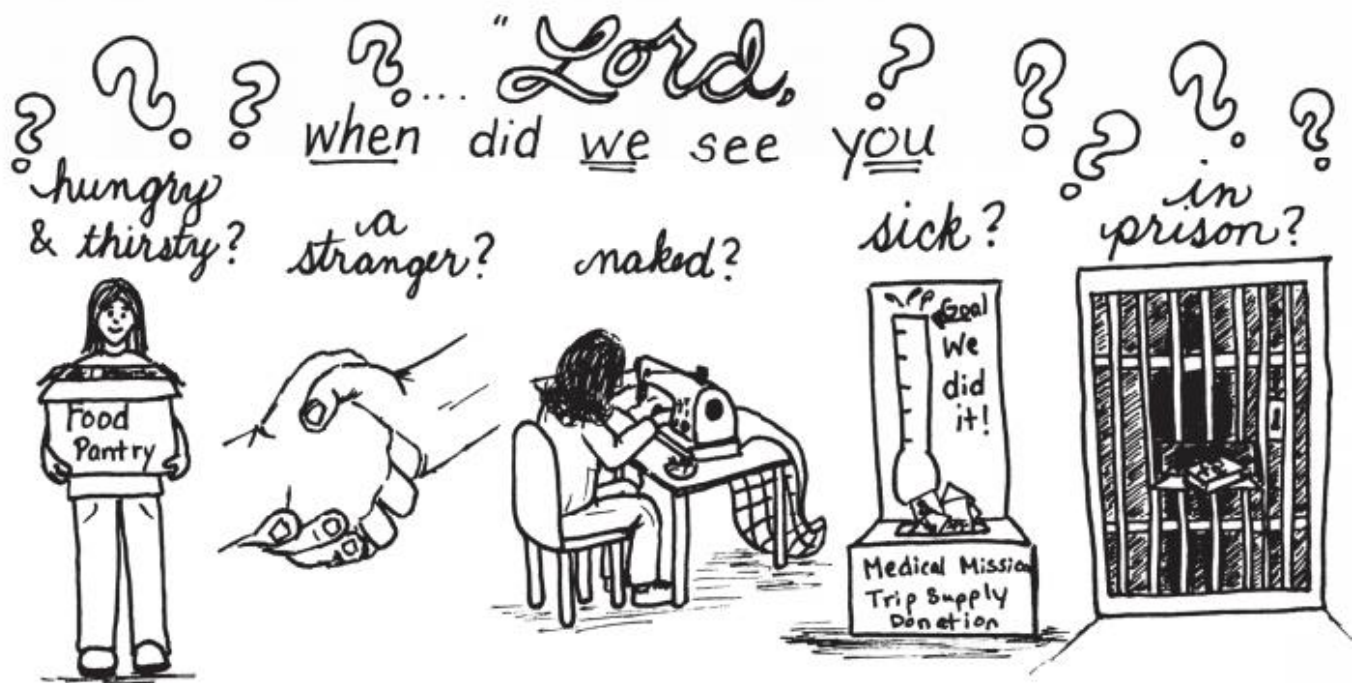 ... "Lord,
when did we see you
hungry
& thirsty?
a
stranger?
naked?
sick?
in
prison?
Food
Pantry
Goal
We
did
it!
Medical Mission
Trip Supply
Donation